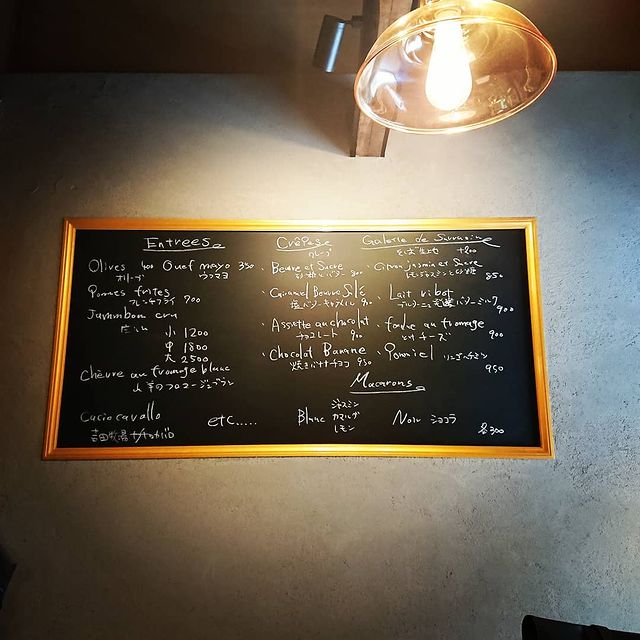 Entrees
Olives 400 Oeuf mayo 350
オリーブ ウフマヨ
Pommes frites
フレンチフライ 900
Jammbon cru
小 1200
中 1800
大 2500
Chèvre au fromage blanc
山羊のフロマージュブラン
Caciocavallo
吉田牧場
etc.....
Crêpes
クレープ
・Beurre et Sucre
・Caramel Beurre Salé
塩バターキャラメル
・Assiette au chocolat
チョコレート 900
・Chocolat Banane
焼きバナナチョコ
Galette de Sarrasin
+200
・Citron Jasmin et Sucre
850
・Lait ribot
900
・fondue au fromage
チーズ 900
・Pommiel
950
Macarons
Blanc
ジャスミン
カマルグ
レモン
Noir ショコラ
各300